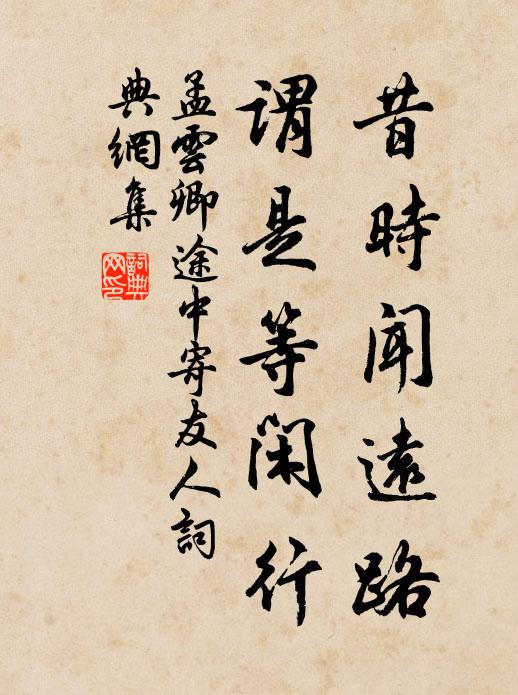 昔時聞遠路
謂是等閑行
孟雲卿途中寄友人詞
典網集
詞典網印